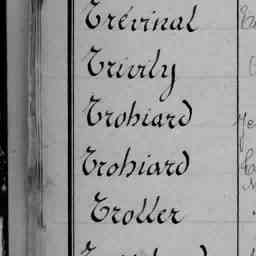 Trévinal
Trivily
Trohiard
Trohiard
Troller